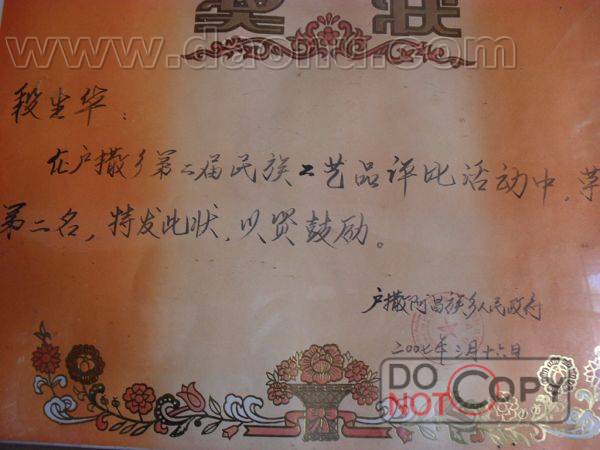 奖状
www.daohu.com
段坐华：
在户撒乡第二届民族工艺品评比活动中，荣
第二名，特发此状，以资鼓励。
户撒阿昌族乡人民政府
二00七年三月十六日
DO NOT COPY